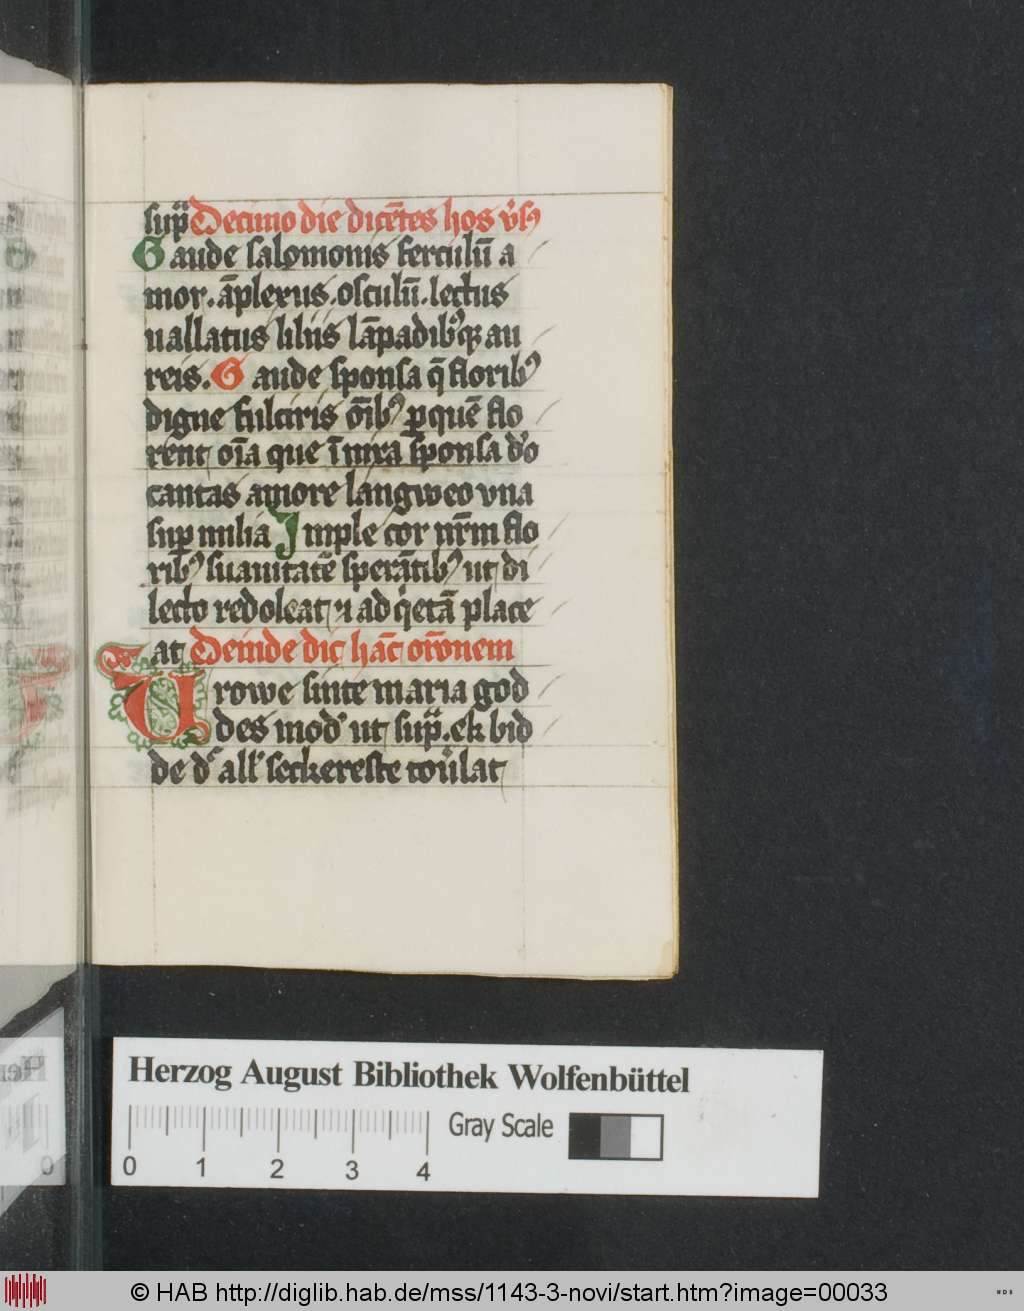 sup̄ Decimo die dicē̄tes hos v̓sꝯ
Gaude salomonis ferculū a
mor . āplexus . osculū . lectus
uallatus liliis lāpadibꝯqꝫ au
reis . Gaude sponsa q̄ floribꝯ
digne fulciris oībꝯ ꝑ quē flo
rent oīa que ī mixa sponsa d̓o
cantas amore langweo vna
suꝑ milia Imple cor nr̄m flo
ribꝯ suauitatē sperātibꝯ ut di
lecto redoleat ⁊ ad q̓etā place
at Deinde dic hāc or̄onem
Urowe sinte maria god
des mod̓ ut sup̄ . ek bid
de d̓ all̓ seckereste
Herzog August Bibliothek Wolfenbüttel
Gray Scale
0 1 2 3 4
© HAB http://diglib.hab.de/mss/1143-3-novi/start.htm?image=00033